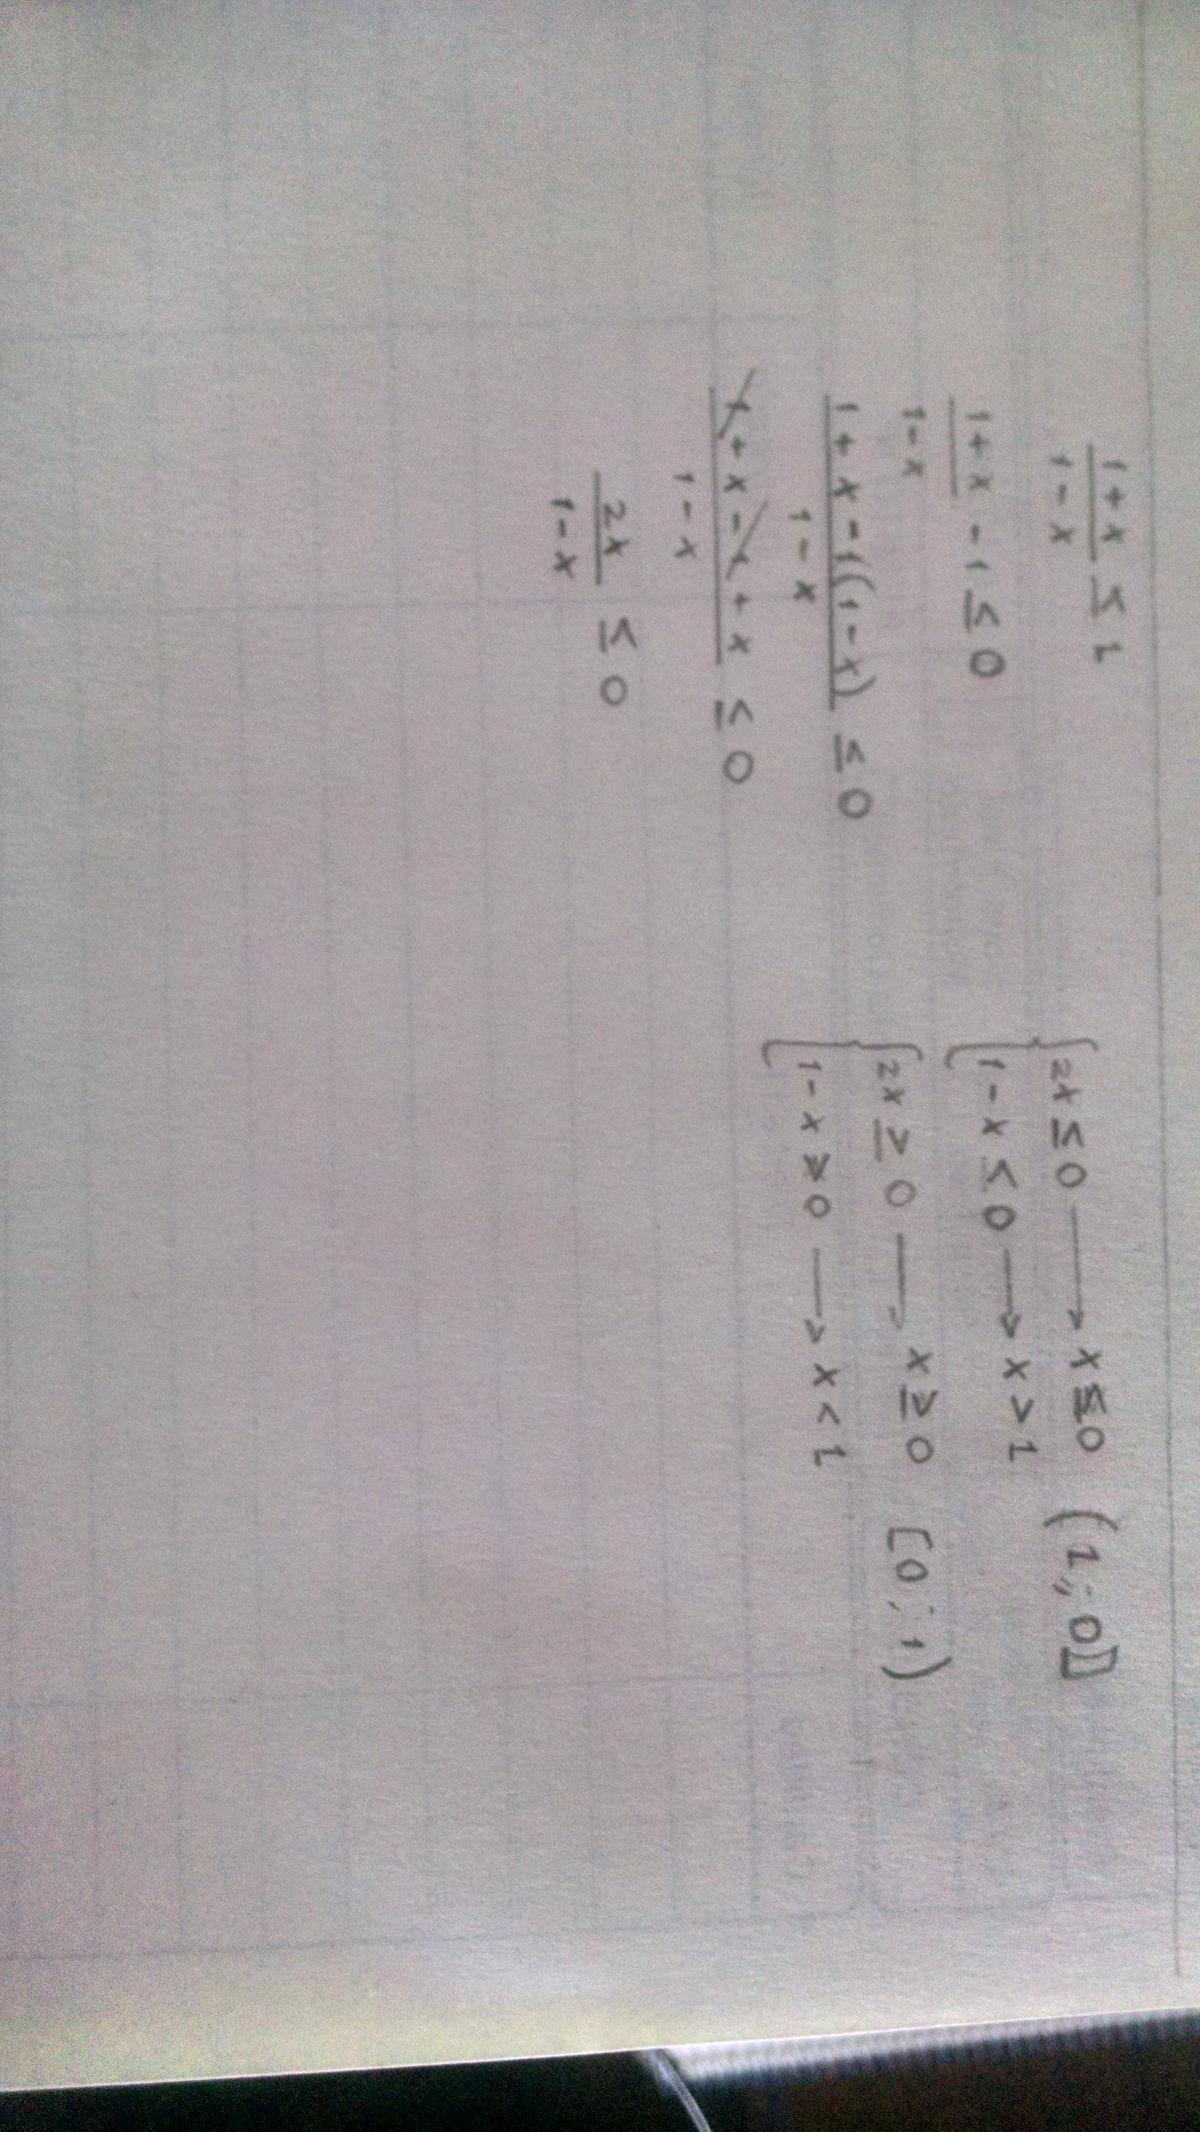 (1+x)/(1-x) ≤ 1
(1+x)/(1-x) - 1 ≤ 0
(1+x-1(1-x))/(1-x) ≤ 0
(1+x-1+x)/(1-x) ≤ 0
2x/(1-x) ≤ 0
{ 2x ≤ 0 → x ≤ 0 (1; 0]
1-x ≤ 0 → x > 1
{ 2x ≥ 0 → x ≥ 0 [0; 1)
1-x ≥ 0 → x < 1